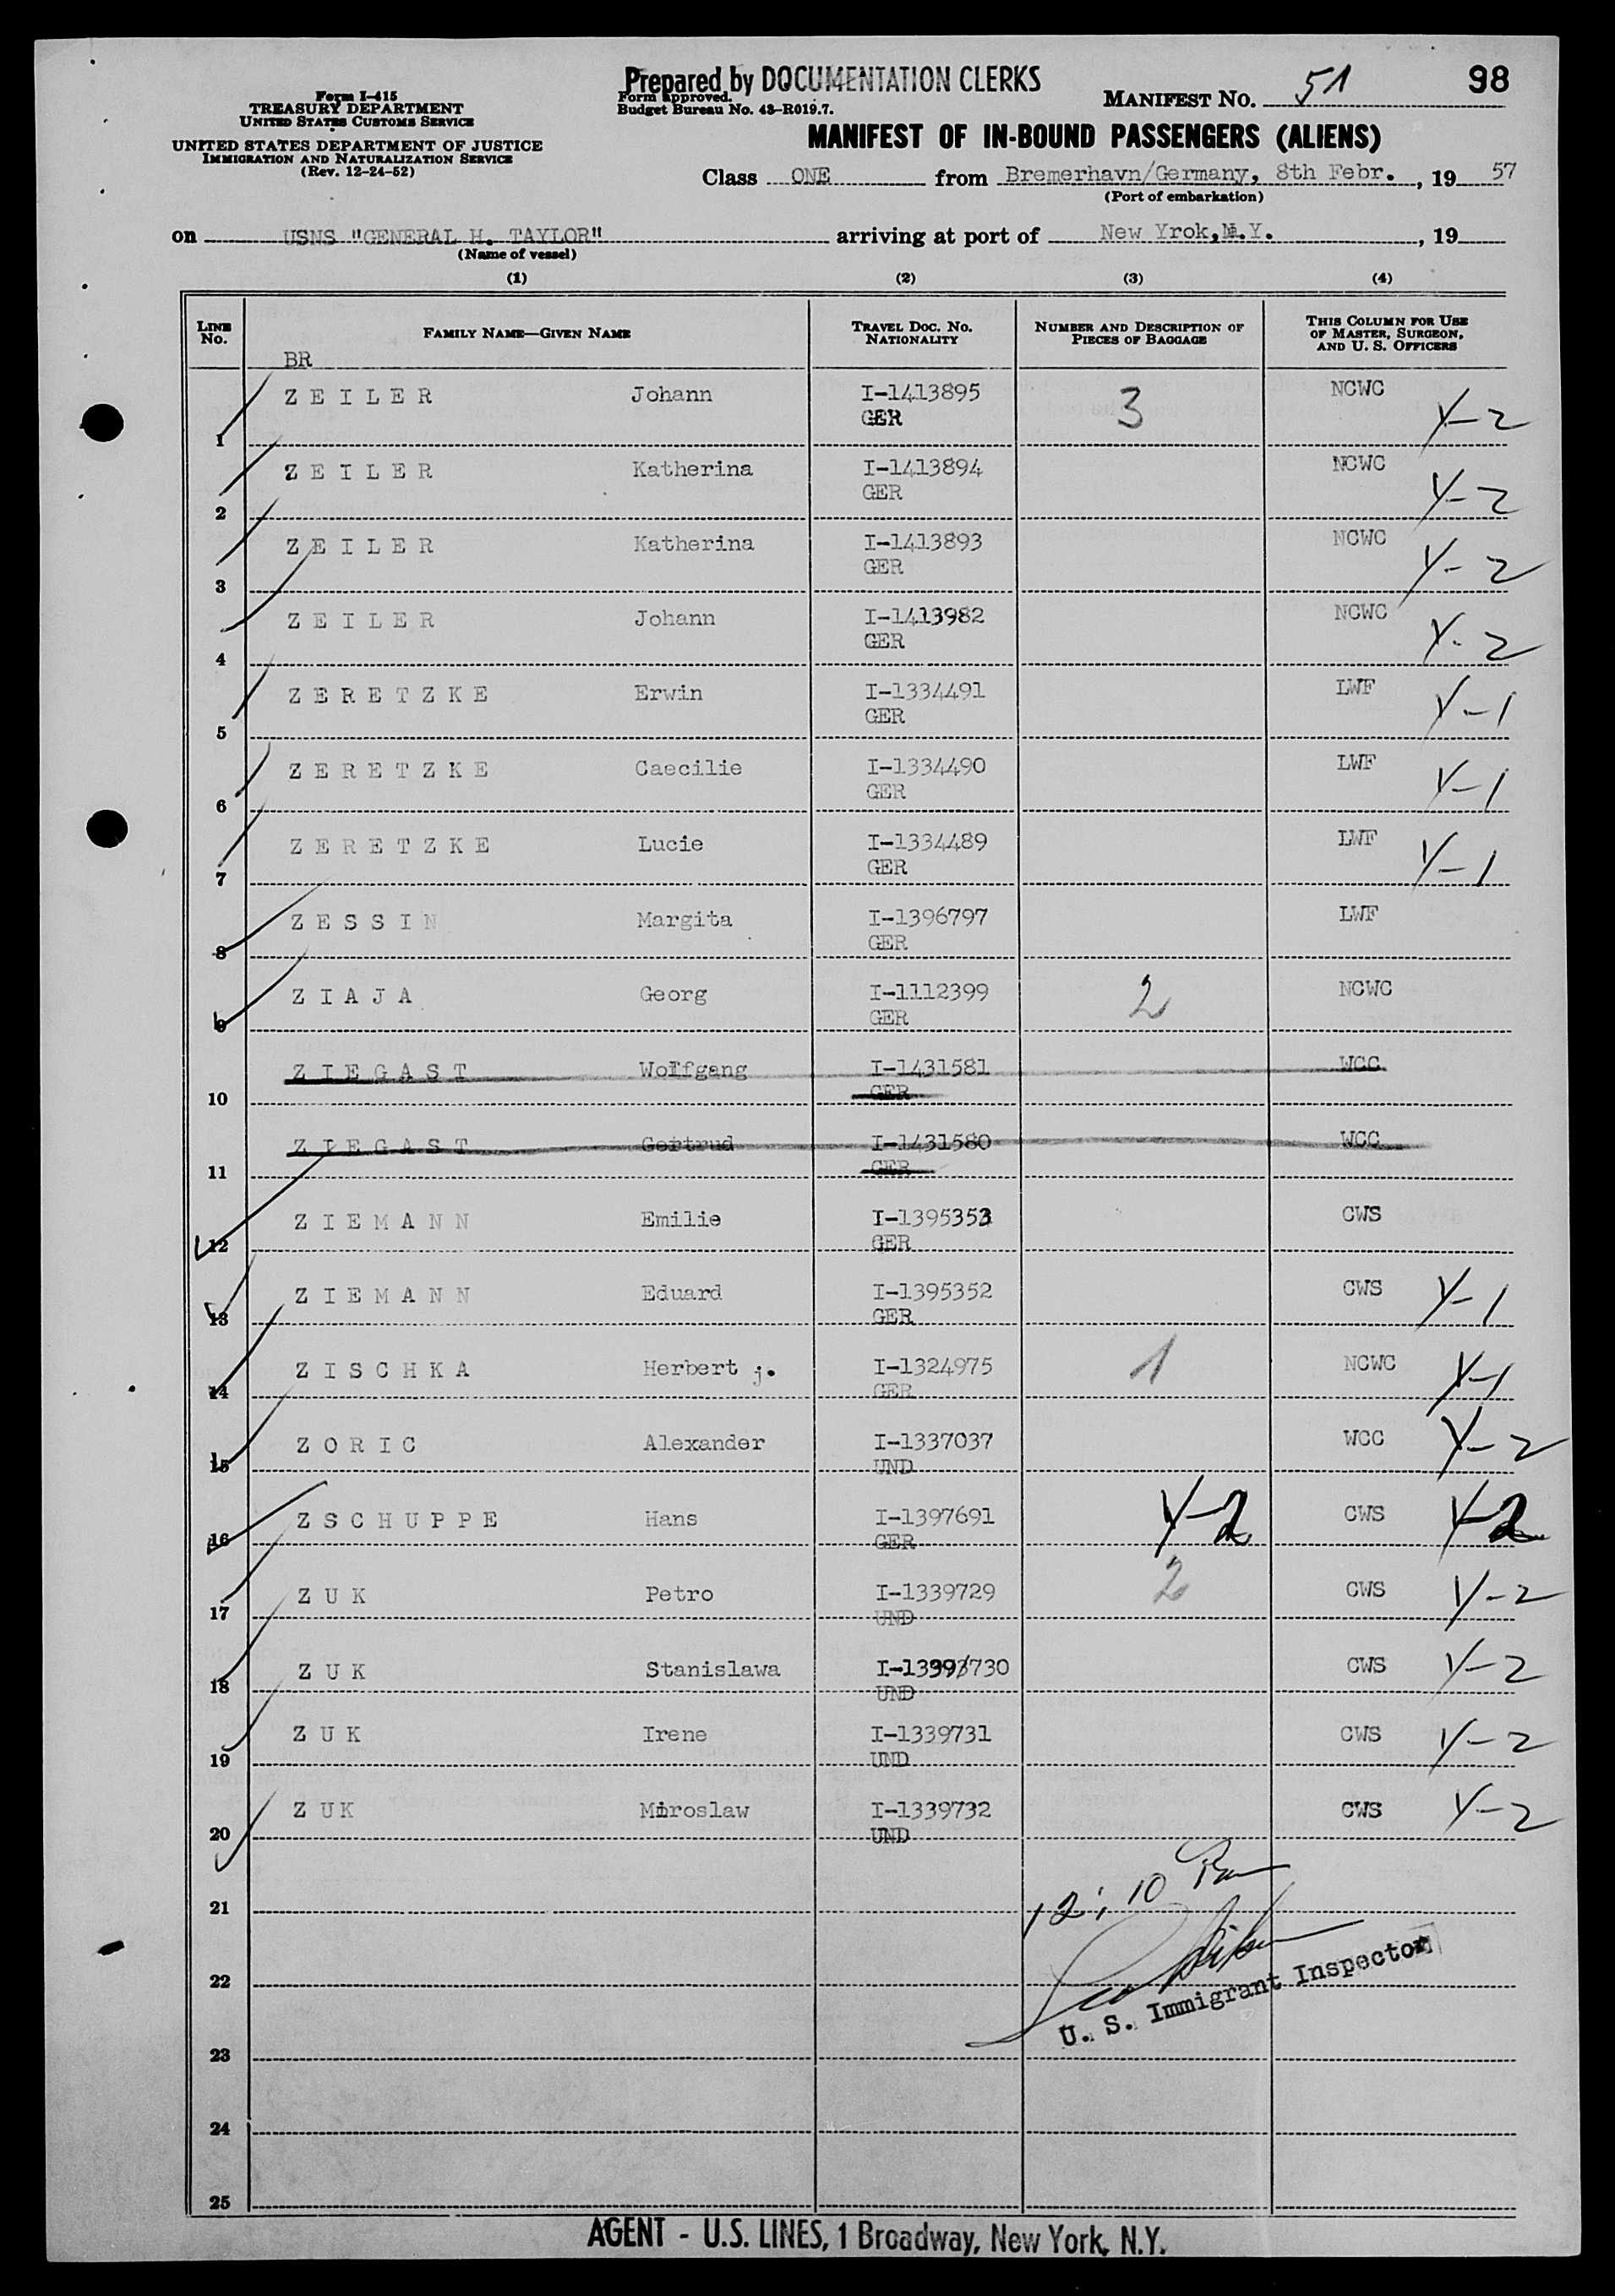 Prepared by DOCUMENTATION CLERKS
98
Form I-415
TREASURY DEPARTMENT
UNITED STATES CUSTOMS SERVICE
UNITED STATES DEPARTMENT OF JUSTICE
IMMIGRATION AND NATURALIZATION SERVICE
(Rev. 12-24-52)
Form approved.
Budget Bureau No. 43-R019.7.
MANIFEST NO. 51
MANIFEST OF IN-BOUND PASSENGERS (ALIENS)
Class ONE from Bremerhavn/Germany, 8th Febr. , 19 57
(Port of embarkation)
on USNS "GENERAL H. TAYLOR" arriving at port of New Yrok,N.Y. , 19
(Name of vessel)
(1) (2) (3) (4)
LINE No. FAMILY NAME—GIVEN NAME TRAVEL DOC. NO. NATIONALITY NUMBER AND DESCRIPTION OF PIECES OF BAGGAGE THIS COLUMN FOR USE OF MASTER, SURGEON, AND U. S. OFFICERS
BR
1 Z E I L E R Johann I-1413895 GER 3 NCWC Y-2
2 Z E I L E R Katherina I-1413894 GER NCWC Y-2
3 Z E I L E R Katherina I-1413893 GER NCWC Y-2
4 Z E I L E R Johann I-1413982 GER NCWC Y-2
5 Z E R E T Z K E Erwin I-1334491 GER LWF Y-1
6 Z E R E T Z K E Caecilie I-1334490 GER LWF Y-1
7 Z E R E T Z K E Lucie I-1334489 GER LWF Y-1
8 Z E S S I N Margita I-1396797 GER LWF
9 Z I A J A Georg I-1112399 GER 2 NCWC
10 Z I E G A S T Wolfgang I-1431581 GER WCC
11 Z I E G A S T Gertrud I-1431580 GER WCC
12 Z I E M A N N Emilie I-1395353 GER CWS
13 Z I E M A N N Eduard I-1395352 GER CWS Y-1
14 Z I S C H K A Herbert j. I-1324975 GER 1 NCWC Y-1
15 Z O R I C Alexander I-1337037 UND WCC Y-2
16 Z S C H U P P E Hans I-1397691 GER Y-2 CWS Y-2
17 Z U K Petro I-1339729 UND 2 CWS Y-2
18 Z U K Stanislawa I-13393/730 UND CWS Y-2
19 Z U K Irene I-1339731 UND CWS Y-2
20 Z U K Miroslaw I-1339732 UND CWS Y-2
12:10 Pm
21
22
U. S. Immigrant Inspector
23
24
25
AGENT - U.S. LINES, 1 Broadway, New York, N.Y.